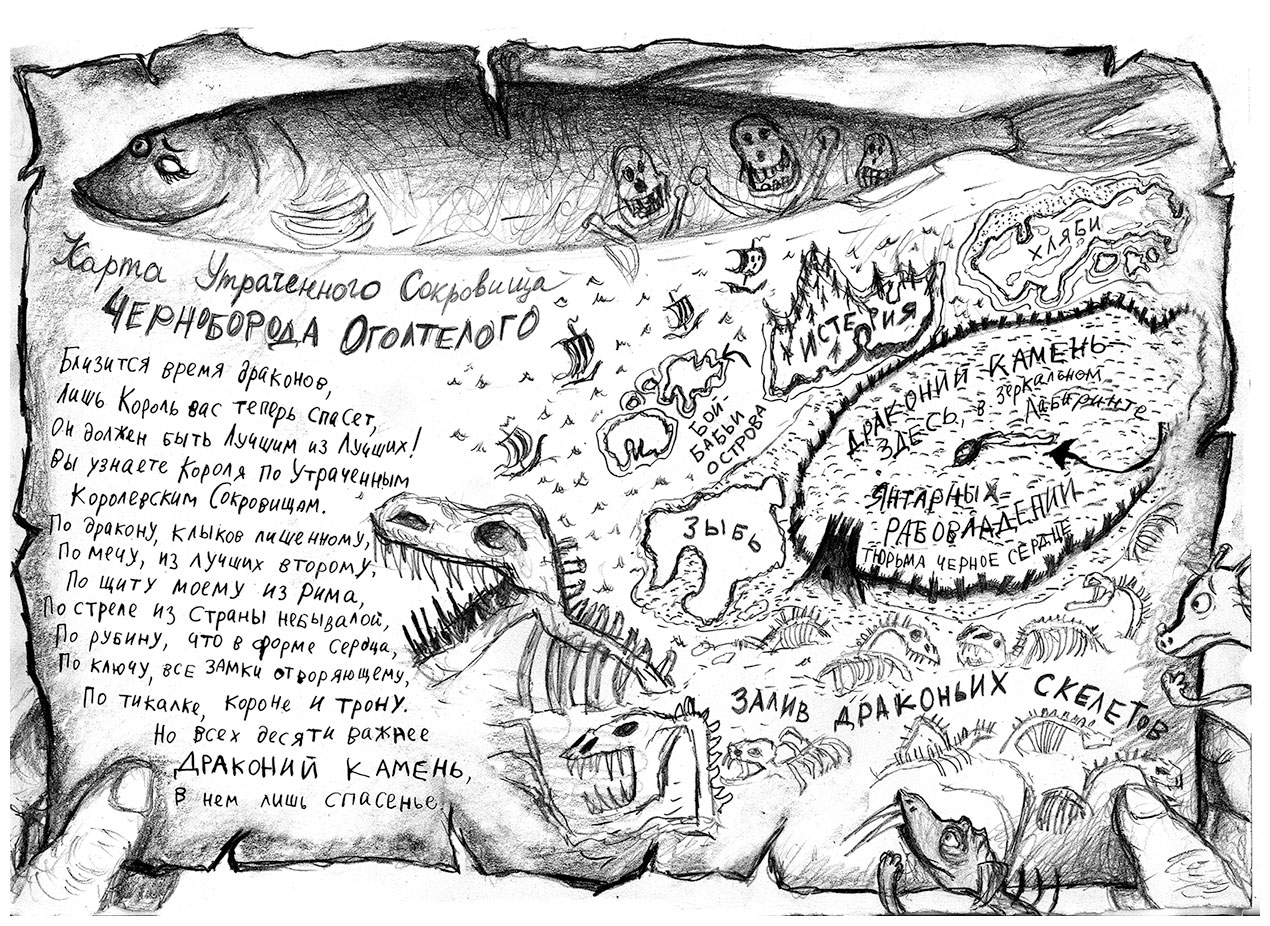 Карта Утраченного Сокровища
ЧЕРНОБОРОДА ОГОЛТЕЛОГО
Близится время драконов,
Лишь Король вас теперь спасет,
Он должен быть Лучшим из Лучших!
Вы узнаете Короля по Утраченным
Королевским Сокровищам.
По дракону, клыков лишенному,
По мечу, из лучших второму,
По щиту моему из Рима,
По стреле из Страны небывалой,
По рубину, что в форме сердца,
По ключу, все замки отворяющему,
По тикалке, короне и трону.
Но всех десяти важнее
ДРАКОНИЙ КАМЕНЬ,
В нем лишь спасенье
ХЛЯБИ
ИСТЕРИЯ
БОЙ
БАБЫ
ОСТРОВА
ЗЫБЬ
ДРАКОНИЙ КАМЕНЬ
ЗДЕСЬ, в зеркальном
Лабиринте
ЯНТАРНЫХ
РАБОВЛАДЕНИЙ
ТЮРЬМА ЧЕРНОЕ СЕРДЦЕ
ЗАЛИВ ДРАКОНЬИХ СКЕЛЕТОВ